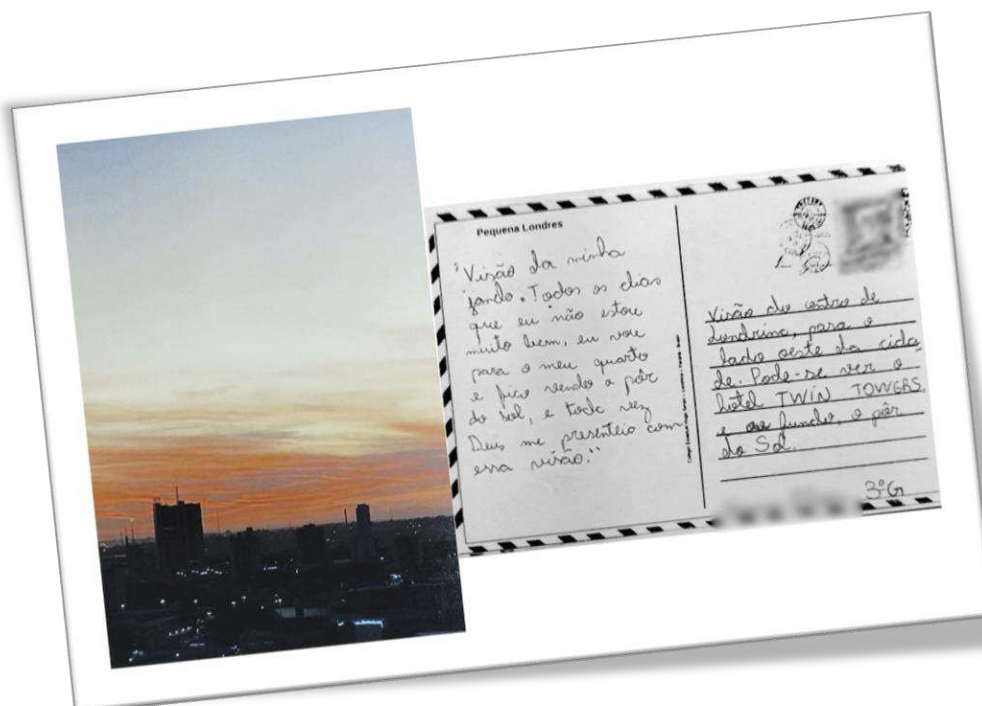 Pequena Londres
"Visão da minha
janela. Todos os dias
que eu não estou
muito bem, eu vou
para o meu quarto
e fico vendo o pôr
do Sol, e toda vez
Deus me presenteia com
essa visão."
Visão do centro de
Londrina, para o
lado oeste da cida
de. Pode-se ver o
hotel TWIN TOWERS
e ao fundo, o pôr
do Sol.
3°G